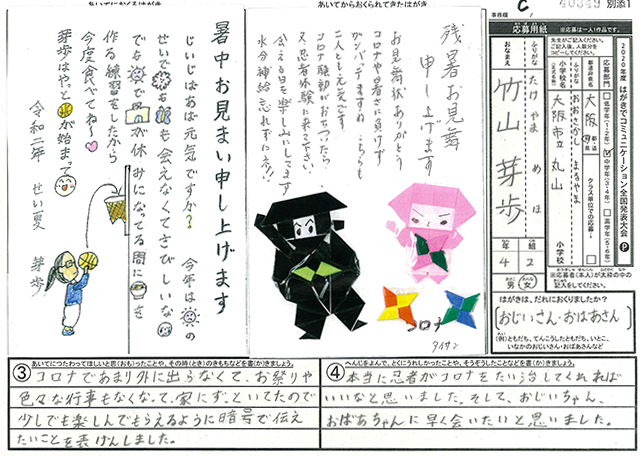 あいてからおくられてきたはがき
C
40349 別添1
事務欄
2020年度 はがきでコミュニケーション全国発表大会 P
応募用紙 ※応募は一人1作品です。
先生がご記入ください。
ご記入後、人数分を
コピーしてください。
応募部門
低学年(1・2年)
中学年(3・4年)
高学年(5・6年)
都道府県名
大阪
都・道
府・県
クラス単位での応募→
ふりがな
小学校名
おおさかしりつ まるやま
大阪市立 丸山
小学校
ふりがな
たけ やま め ほ
おなまえ
竹山 芽歩
年 組
4 2
男・女
※応募者(本人)が太枠の中の
記入をしてください。
はがきは、だれにおくりましたか?
おじいさん・おばあさん
(例)ともだち、てんこうしたともだち、いとこ、
いなかのおじいさん・おばあさんなど
残暑お見舞
申し上げます
お見舞状ありがとう
コロナや暑さに負けず
ガンバッテますね
二人とも元気です
コロナ騒動がおちついたら
又忍者体験に来て下さい
会える日を楽しみにしてます
水分補給忘れずに
コロナ
タイサン
暑中お見まい申し上げます
じいじばあば元気ですか? 今年は
の
せいで
も会えなくてさびしいな
で
が休みになってる間に
を
作る練習をしたから
今度食べてね〜
芽歩はやっと
が始まって
令和二年 せい夏 芽歩
③ あいてにつたわってほしいと思(おも)ったことや、その時(とき)のきもちなどを書(か)きましょう。
コロナであまり外に出らなくて、お祭りや
色々な行事もなくなって、家にずっといてたので
少しでも楽しんでもらえるように暗号で伝え
たいことを表げんしました。
④ へんじをよんで、とくにうれしかったことや、そうぞうしたことなどを書(か)きましょう。
本当に忍者がコロナをたい治してくれれば
いいなと思いました。そして、おじいちゃん、
おばあちゃんに早く会いたいと思いました。